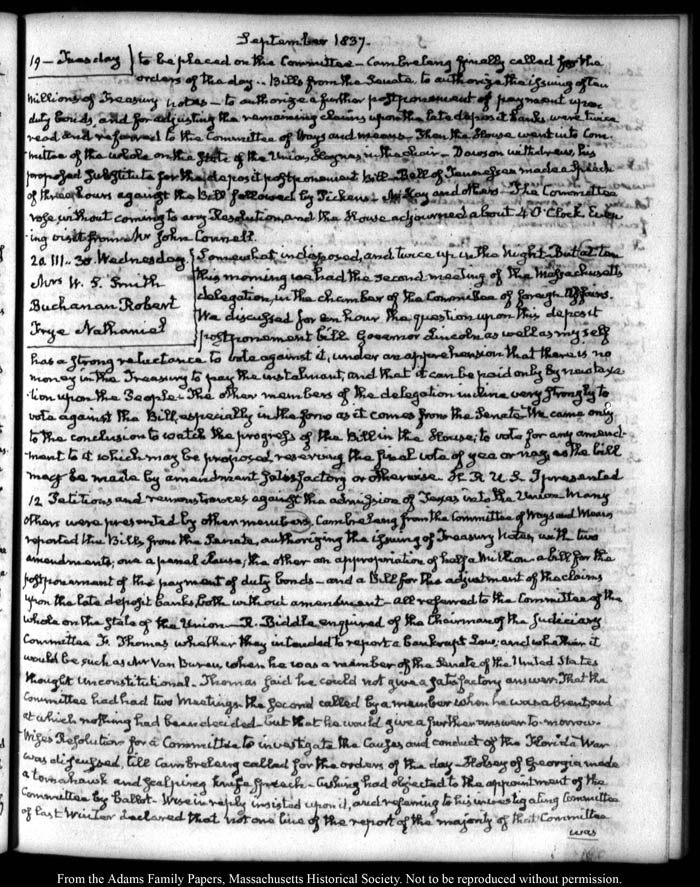 September 1837.
19 - Tuesday to be placed on the Committee - Cambreleng finally called for the
orders of the day - Bills from the Senate, to authorize the issuing of ten
millions of Treasury notes - to authorize a further postponement of payment upon
duty bonds, and for adjusting the remaining claims upon the late deposit banks were twice
read and referred to the Committee of Ways and means. Then the House went into Com-
mittee of the whole on the State of the Union, Haynes in the chair - Dawson withdrew his
proposed substitute for the deposit postponement Bill - Bell of Tennessee made a Speech
of three hours against the Bill followed by Pickens - McKay and others - The Committee
rose without coming to any Resolution, and the House adjourned about 4 O'Clock. Even-
ing visit from Mr John Connell.
20. III.. 30. Wednesday Somewhat indisposed, and twice up in the Night. But at ten
Mrs W. S. Smith this morning we had the second meeting of the Massachusetts
Buchanan Robert delegation, in the chamber of the Committee of foreign Affairs.
Frye Nathaniel We discussed for an hour the question upon this deposit
postponement bill. Governor Lincoln as well as myself
has a strong reluctance to vote against it, under an apprehension that there is no
money in the Treasury to pay the instalment, and that it can be paid only by new taxa-
tion upon the People. The other members of the delegation incline very strongly to
vote against the Bill, especially in the form as it comes from the Senate. We came only
to the conclusion to watch the progress of the Bill in the House, to vote for any amend-
ment to it which may be proposed, reserving the final vote of yea or nay, as the bill
may be made by amendment satisfactory or otherwise. H. R. U. S. I presented
12 Petitions and remonstrances against the admission of Texas into the Union. Many
others were presented by other members. Cambreleng from the Committee of Ways and Means
reported the Bills from the Senate, authorizing the issuing of Treasury Notes, with two
amendments, one a penal clause, the other an appropriation of half a Million - a bill for the
postponement of the payment of duty bonds - and a Bill for the adjustment of the claims
upon the late deposit banks, both without amendment - all referred to the Committee of the
whole on the State of the Union - R. Biddle enquired of the Chairman of the Judiciary
Committee F. Thomas whether they intended to report a bankrupt Law; and whether it
would be such as Mr Van Buren, when he was a member of the Senate of the United States
thought unconstitutional. Thomas said he could not give a satisfactory answer. That the
Committee had had two Meetings, the second called by a member when he was absent, and
at which nothing had been decided - but that he would give a further answer to-morrow.
Wise's Resolution for a Committee to investigate the Causes and conduct of the Florida War
was discussed, till Cambreleng called for the orders of the day - Holsey of Georgia made
a tomahawk and scalping knife speech - Cushing had objected to the appointment of the
Committee by Ballot - Wise in reply insisted upon it, and referring to his investigating Committee
of last Winter declared that not one line of the report of the majority of that Committee
was
From the Adams Family Papers, Massachusetts Historical Society. Not to be reproduced without permission.